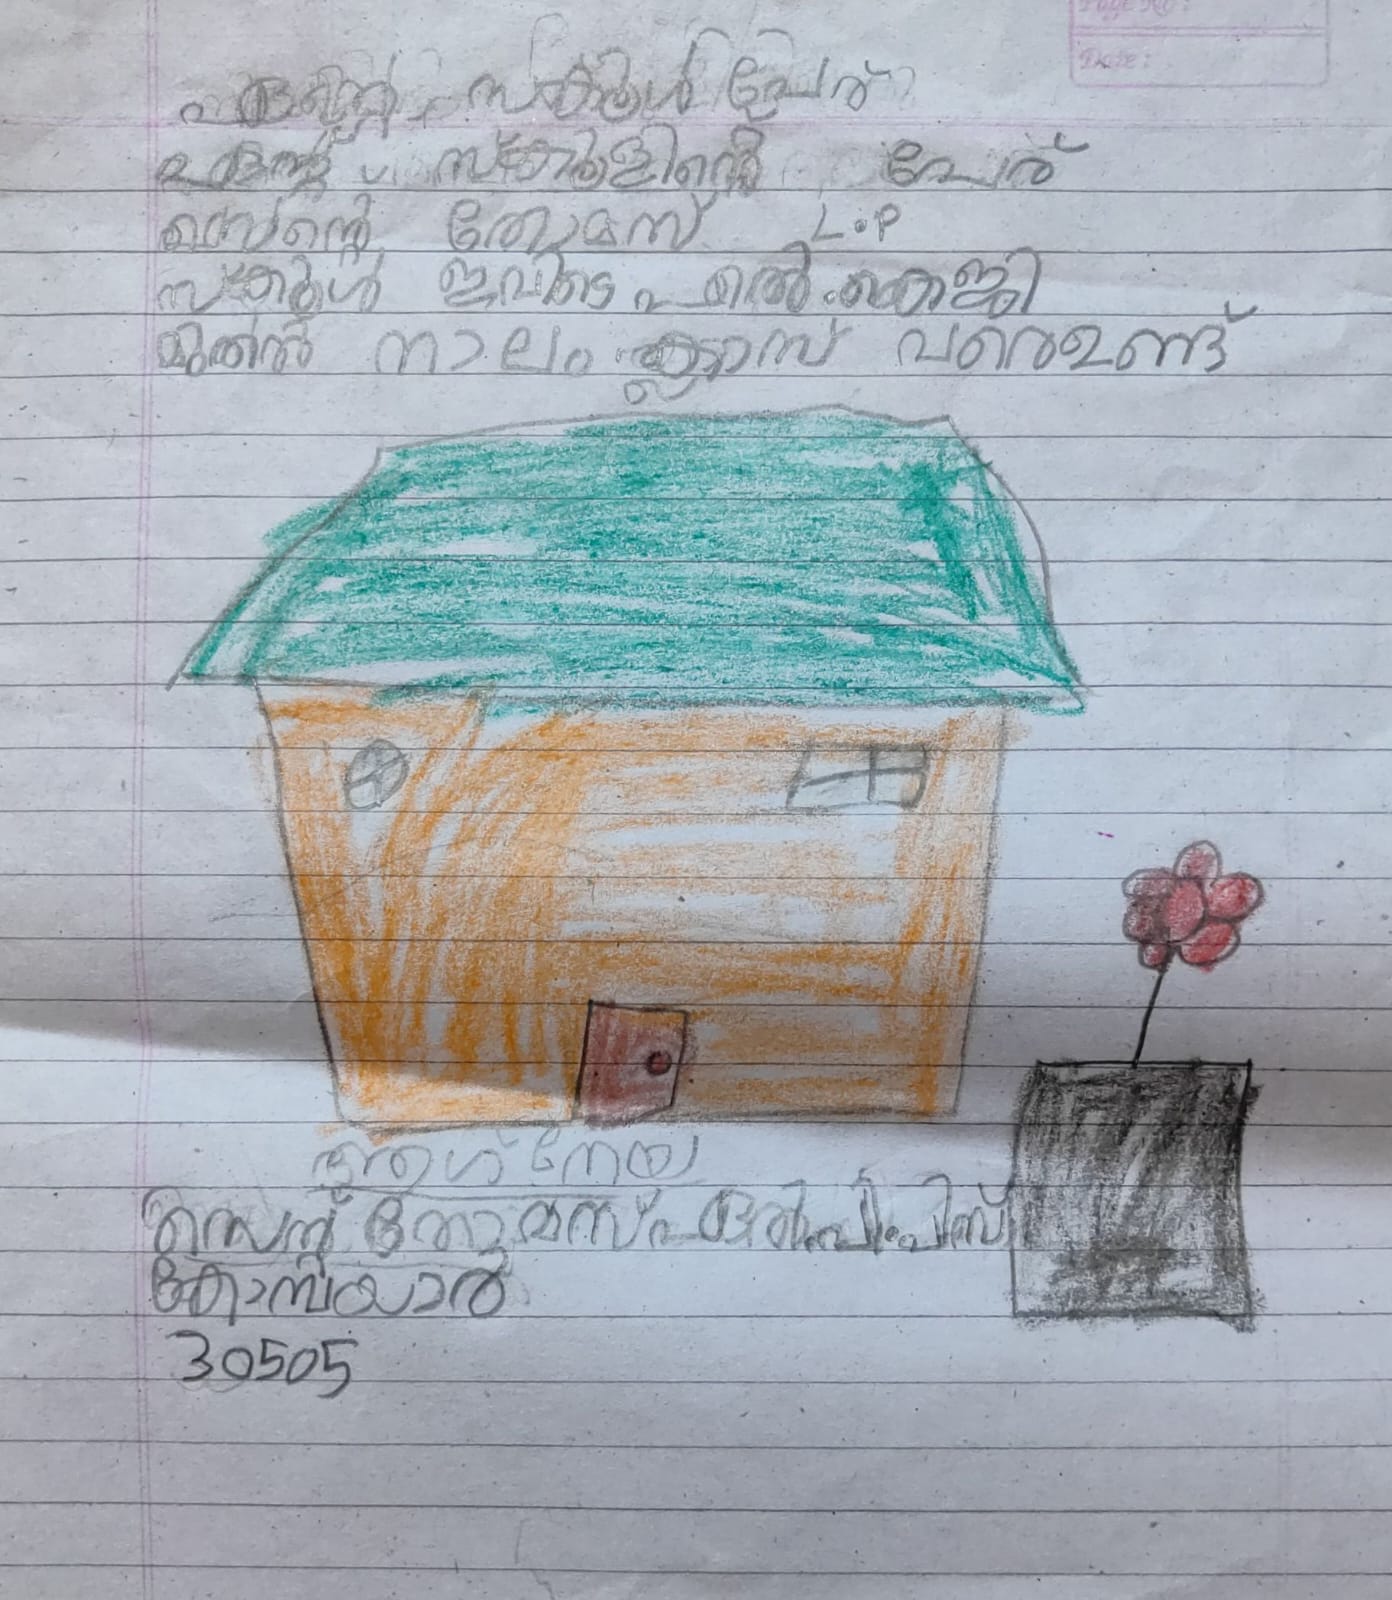 സ്കൂൾ പേര്
എന്റെ സ്കൂളിന്റെ പേര്
സെന്റെ തോമസ് L.P
സ്കൂൾ ഇവിടെ എൽ.കെജി
മുതൽ നാലം ക്ലാസ് വരെഉണ്ട്
ആഗ്നേയ
സെന്റ് തോമസ്
കോമ്പയാർ
30505
Page No:
Date: